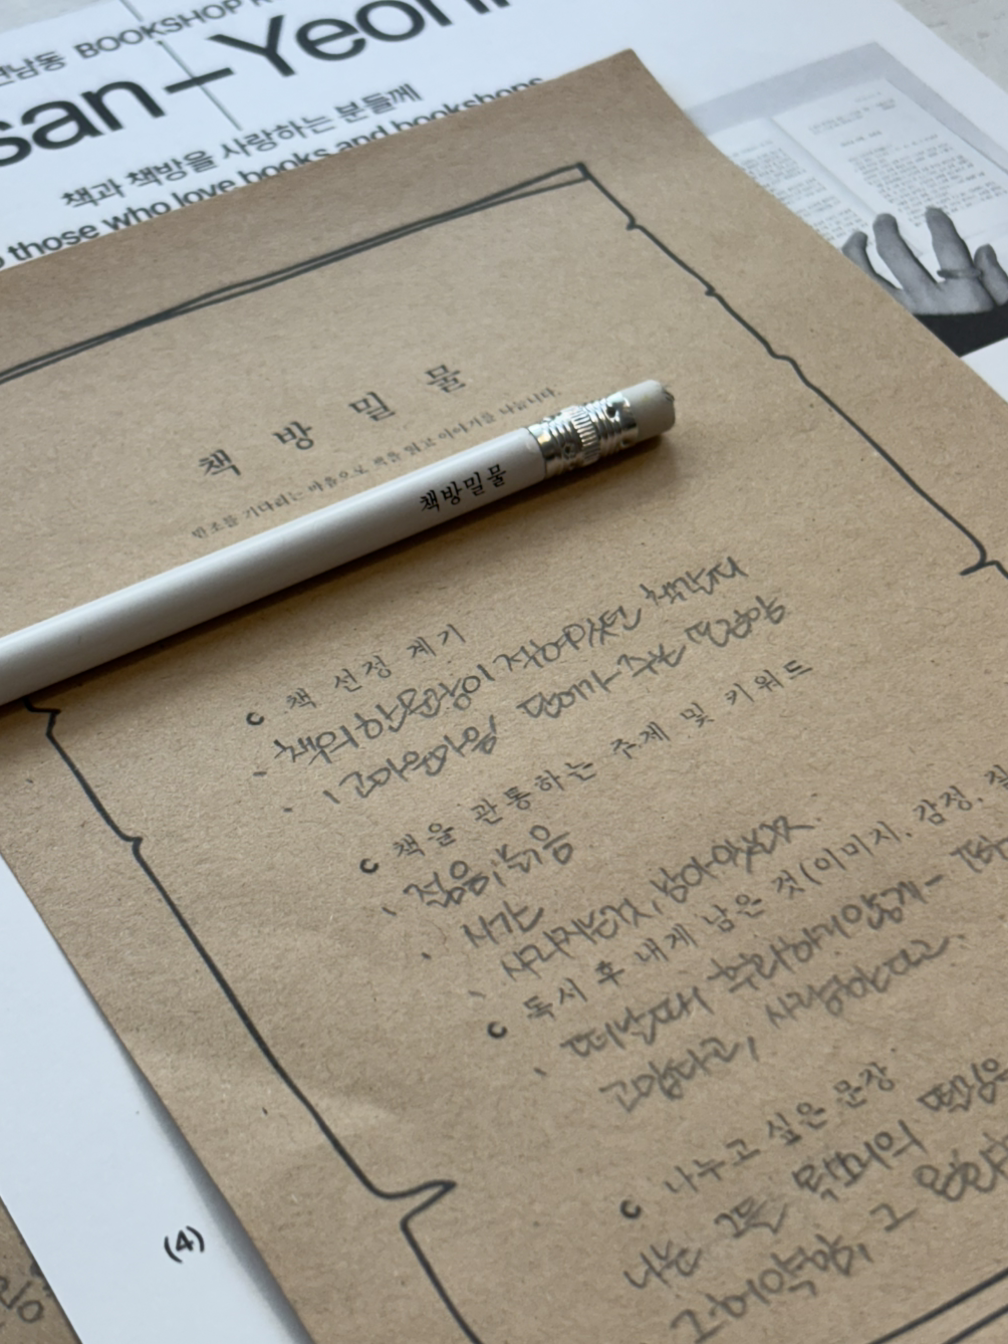 연남동 BOOKSHOP
san+Yeon
책과 책방을 사랑하는 분들께
those who love books and bookshops
책 방 밀 물
만조를 기다리는 마음으로 책을 읽고 이야기를 나눕니다.
책방밀물
책 선정 계기
책의 한 문장이 적혀있던 책갈피
고마운마음
책을 관통하는 주제 및 키워드
젊음, 늙음
시간
사라지는것, 남아있는것.
독서 후 내게 남은 것(이미지, 감정, 질
떠날때 후회하지않게-
고맙다고, 사랑한다고.
나누고 싶은 문장
나는 그들
그
(4)